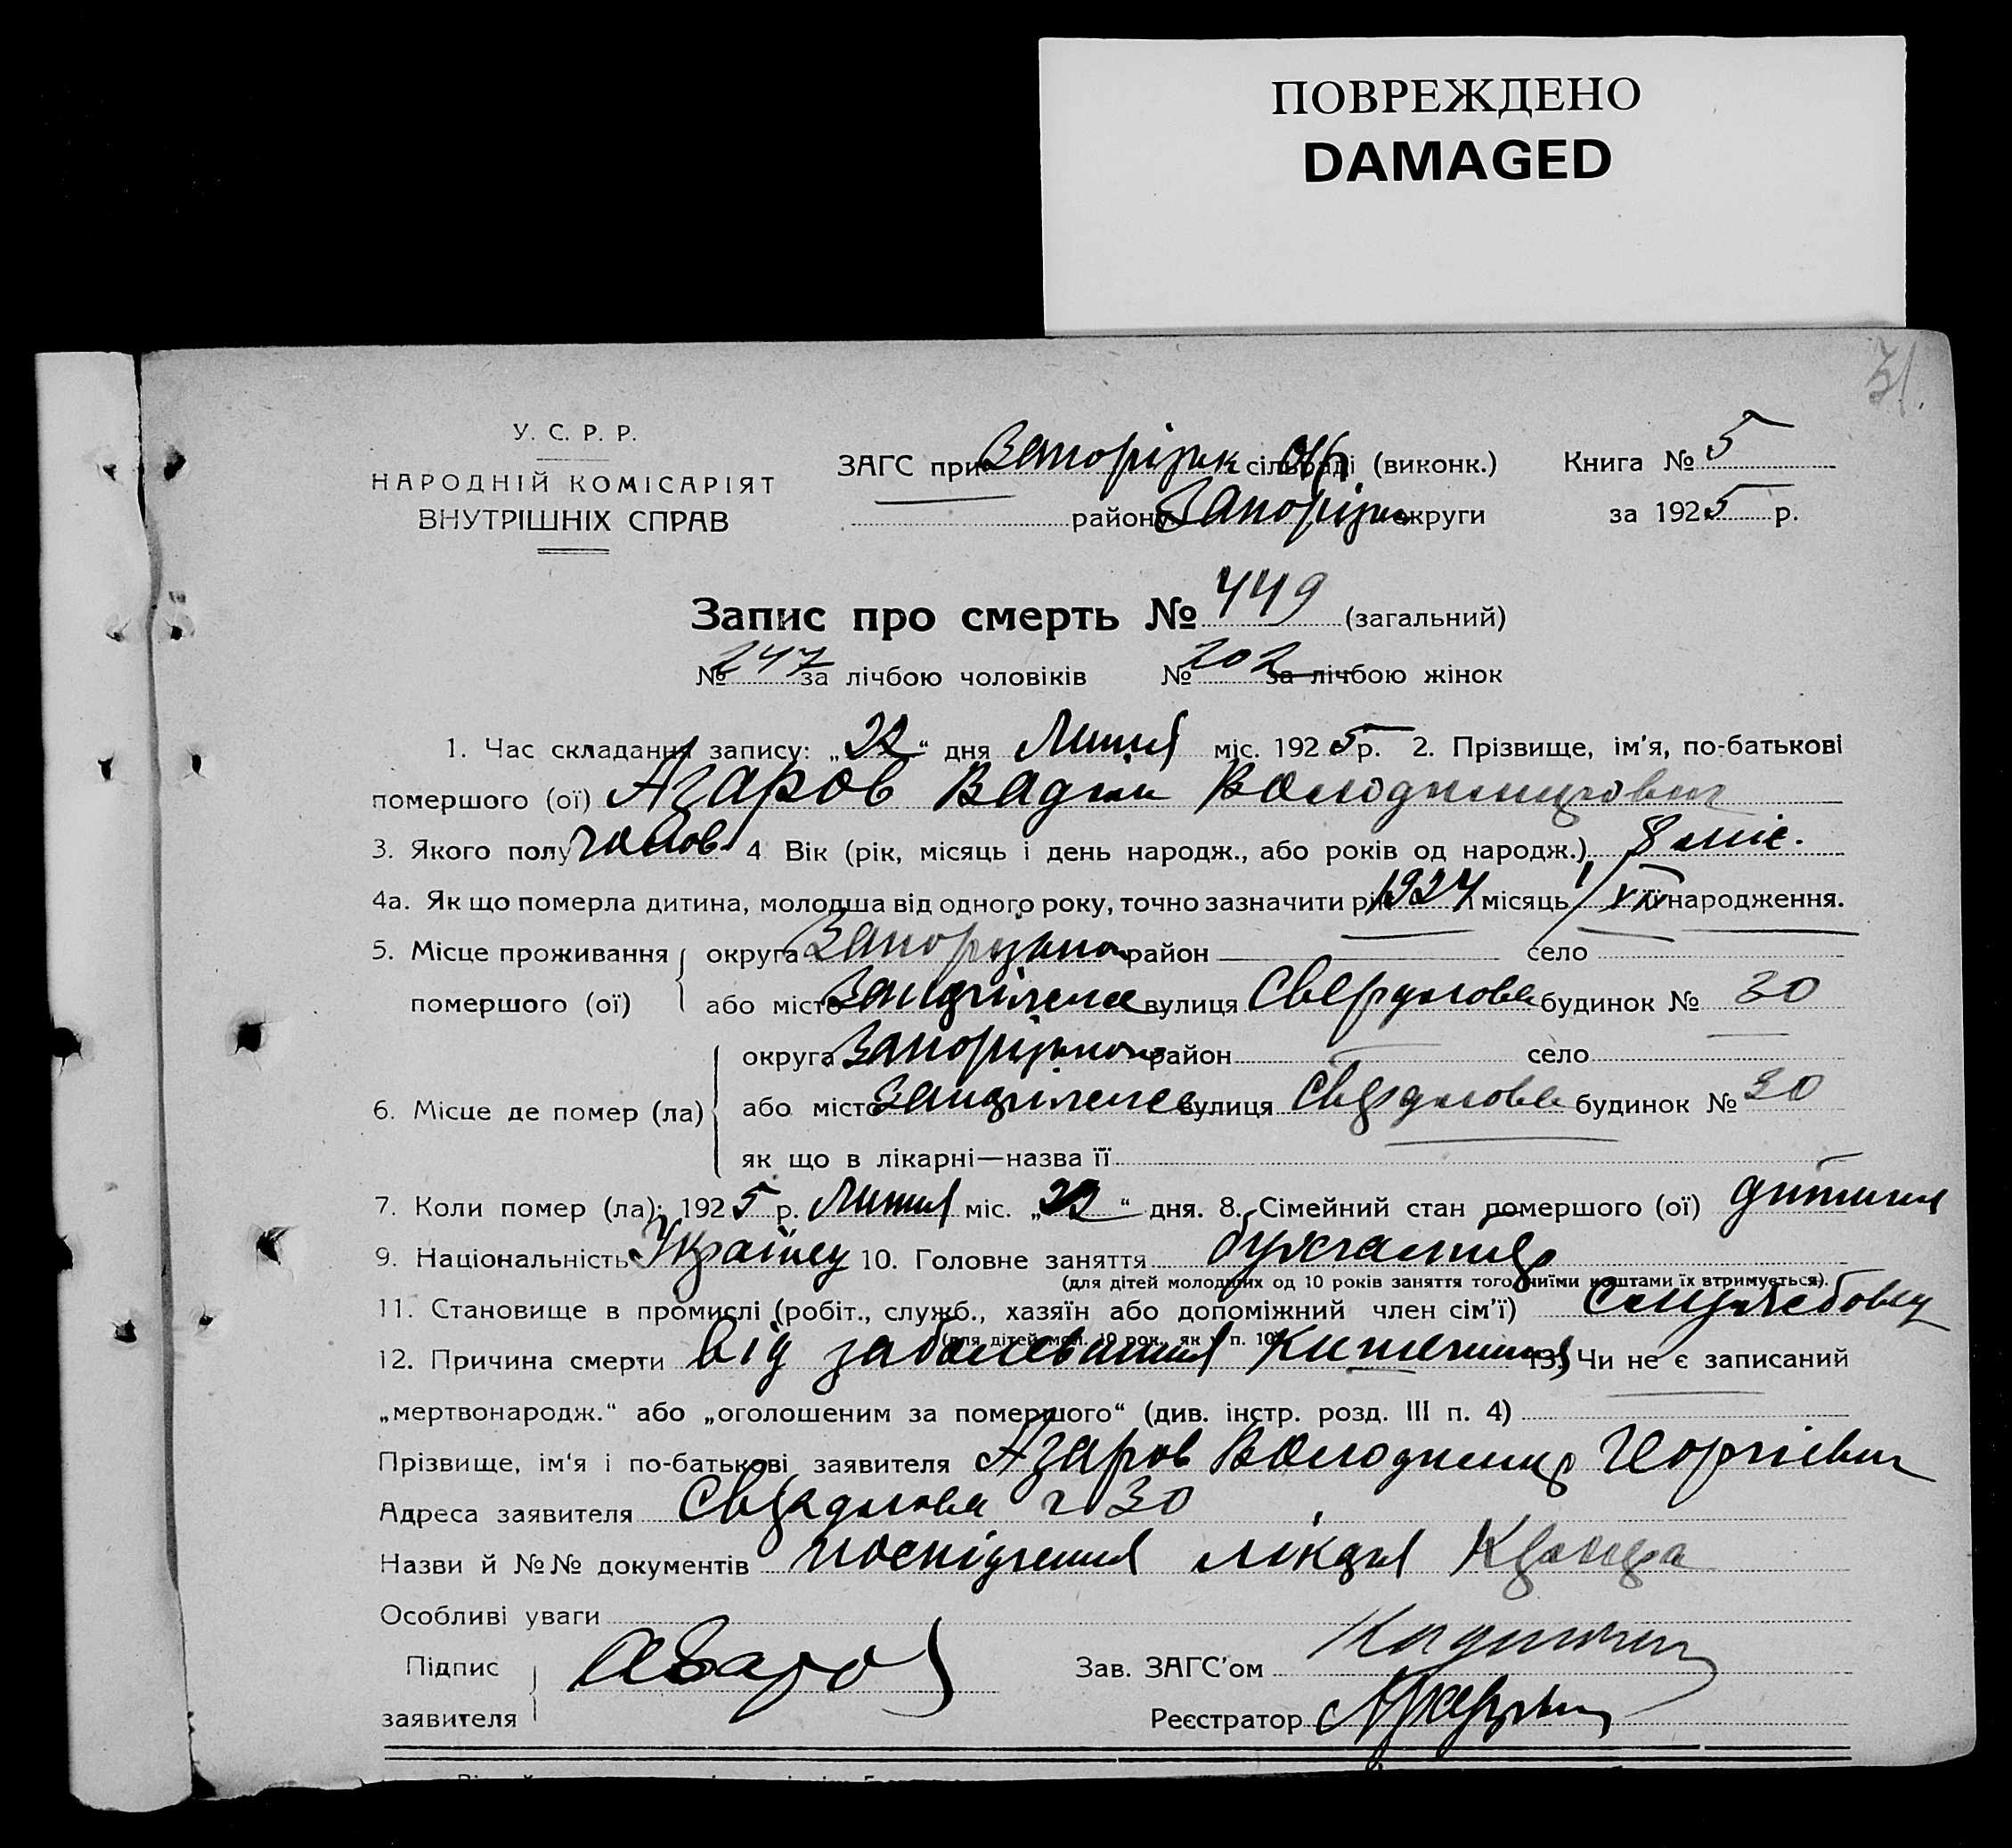 ПОВРЕЖДЕНО
DAMAGED
31.
У. С. Р. Р.
НАРОДНІЙ КОМІСАРІЯТ
ВНУТРІШНІХ СПРАВ
ЗАГС при Запоріжк сільраді (виконк.) Книга № 5
району Запоріжк округи за 1925 р.
Запис про смерть № 449 (загальний)
№ 247 за лічбою чоловіків № 202 за лічбою жінок
1. Час складання запису: „22“ дня Липня міс. 1925 р. 2. Прізвище, ім'я, по-батькові
помершого (ої) Азаров Вадим Володимирович
3. Якого полу чолов 4 Вік (рік, місяць і день народж., або років од народж.) 8 міс.
4а. Як що померла дитина, молодша від одного року, точно зазначити рік 1924 місяць її народження.
5. Місце проживання округа район село
помершого (ої) або місто вулиця Свердлова будинок № 30
округа район село
6. Місце де помер (ла) або місто вулиця Свердлова будинок № 30
як що в лікарні—назва її
7. Коли помер (ла): 1925 р. Липня міс. „22“ дня. 8. Сімейний стан помершого (ої) дитина
9. Національність Украінец 10. Головне заняття бухгалтер
(для дітей молодших од 10 років заняття того, чиїми коштами їх втримується).
11. Становище в промислі (робіт., служб., хазяїн або допоміжний член сім'ї)
(для дітей мол. 10 рок., як у п. 10)
12. Причина смерти від 13. Чи не є записаний
„мертвонародж.“ або „оголошеним за помершого“ (див. інстр. розд. III п. 4)
Прізвище, ім'я і по-батькові заявителя Азаров Володимир
Адреса заявителя Свердлова 30
Назви й №№ документів посвідчення лікаря
Особливі уваги
Підпис Азаров Зав. ЗАГС'ом
заявителя Реєстратор